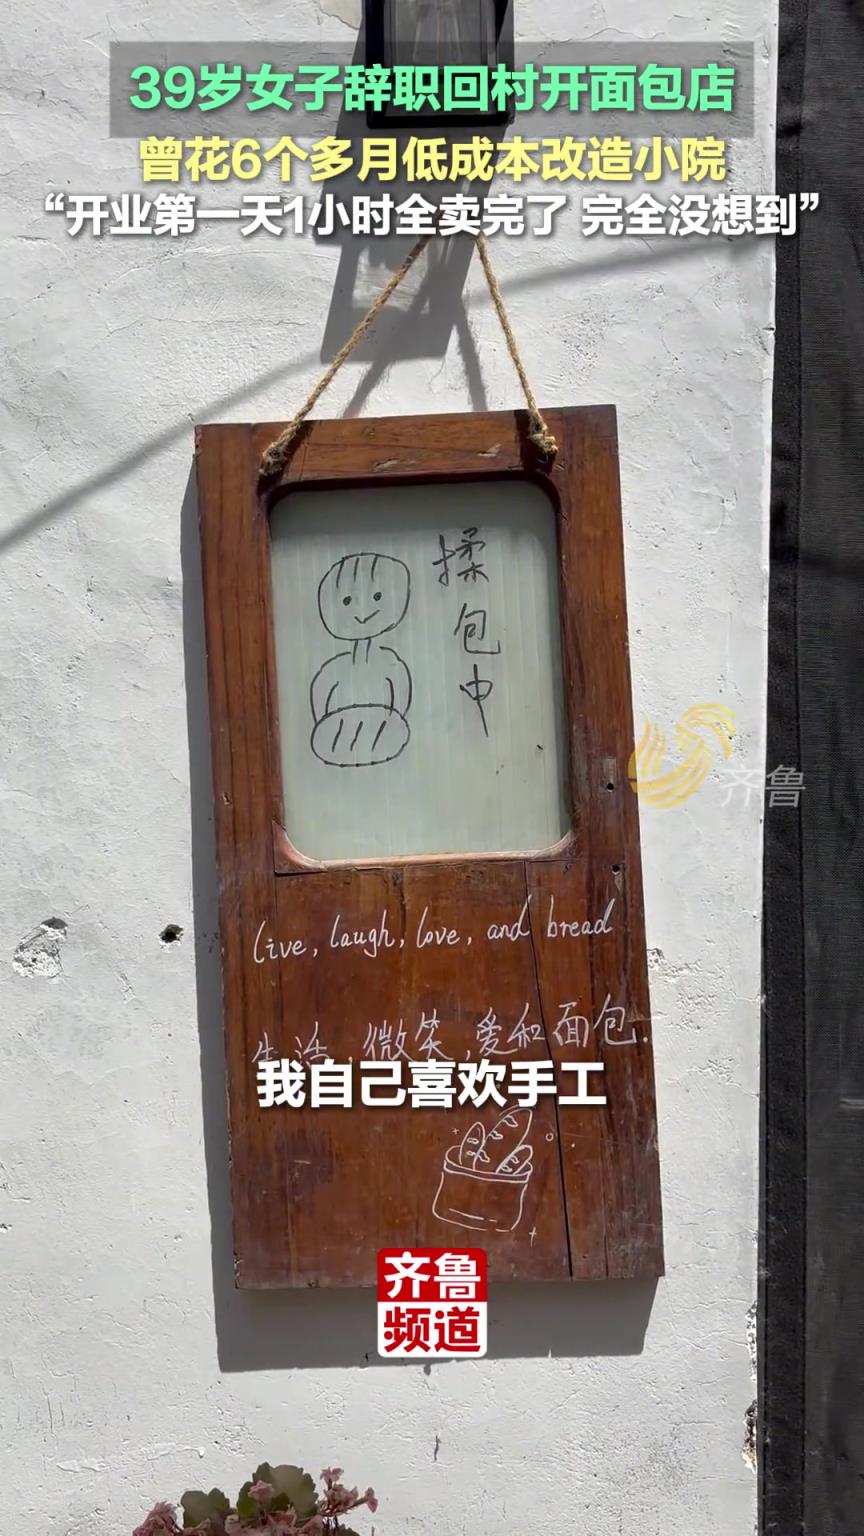 39岁女子辞职回村开面包店
曾花6个多月低成本改造小院
“开业第一天1小时全卖完了 完全没想到”
揉
包
中
齐鲁
live, laugh, love, and bread
生活, 微笑, 爱和面包.
我自己喜欢手工
齐鲁
频道